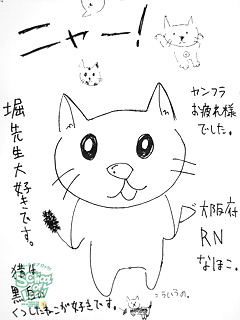 ニャー!
ヤンフラ
お疲れ様
でした。
堀先生大好きです。
大阪府
RN
なほこ。
猫は
黒白の
くつしたねこが好きです。
こういうの。